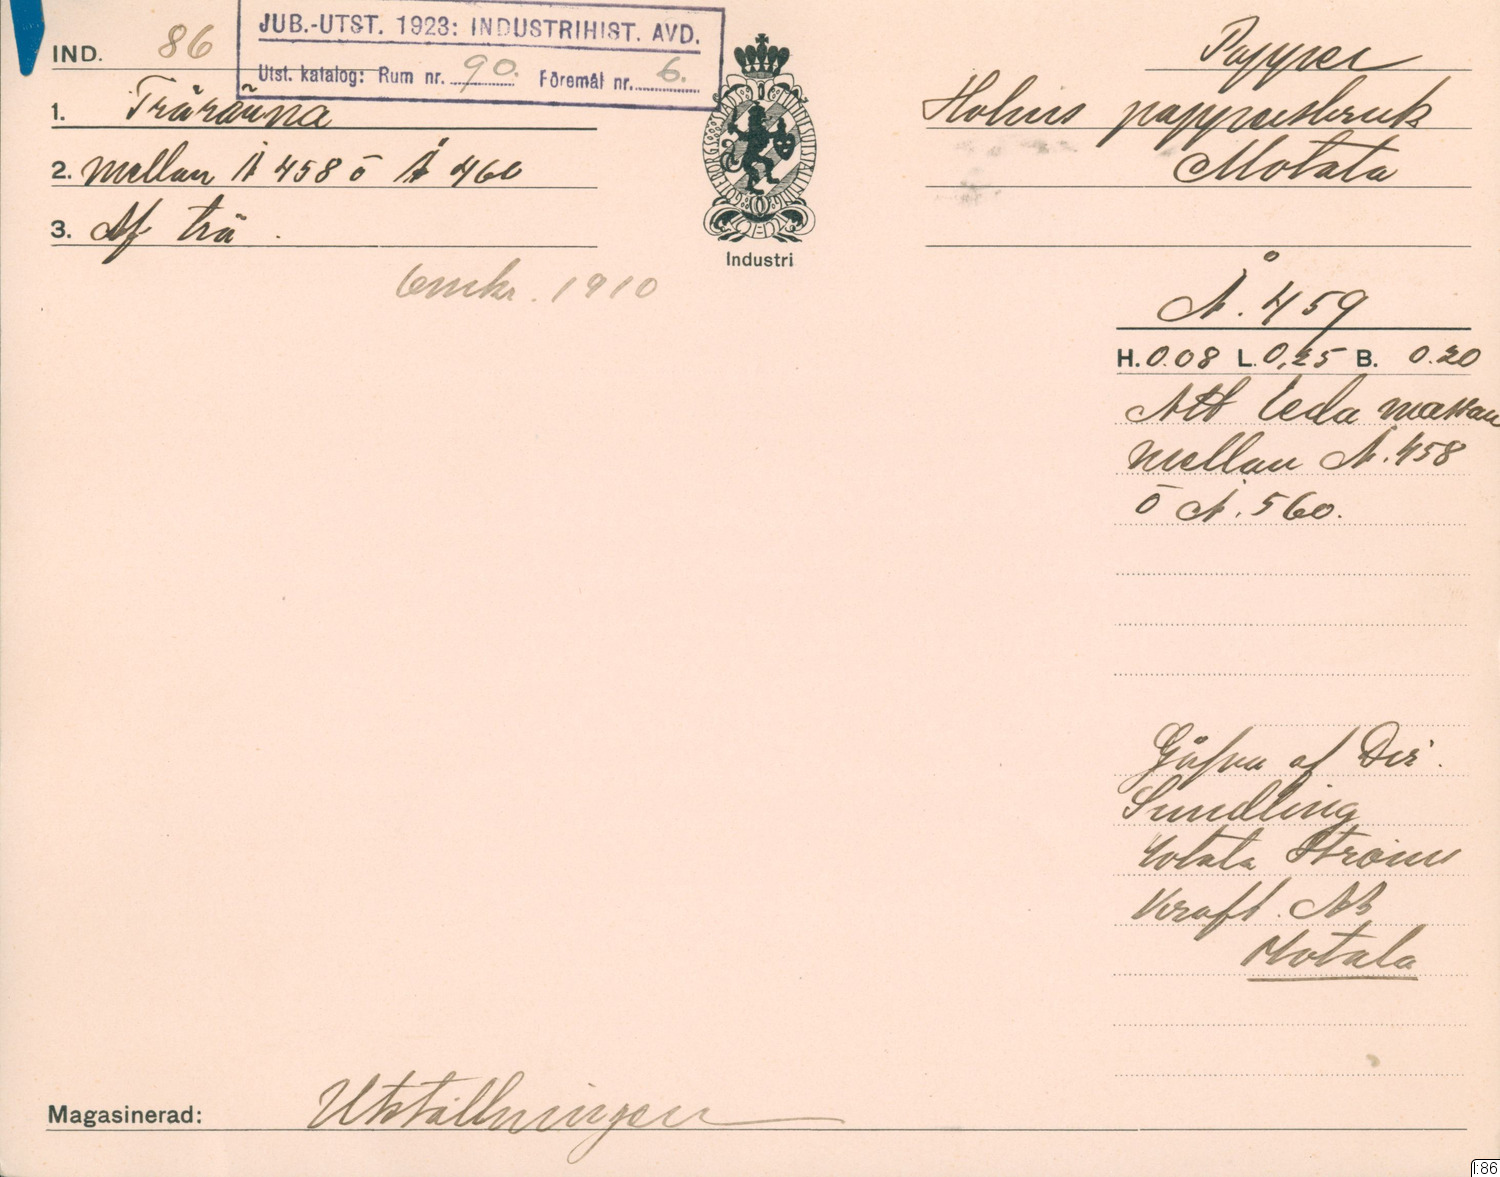 JUB.-UTST. 1923: INDUSTRIHIST. AVD.
Utst. katalog: Rum nr. 90. Föremål nr. 6.
IND. 86
1. Träränna
2. mellan Å 458 o Å 460
3. Af trä.
omkr. 1910
GÖTEBORGS STADS MINNESUTSTÄLLNING
Industri
Papper
Holms pappersbruk
Motala
Å. 459
H. 0.08 L. 0,25 B. 0.20
Att leda massan
mellan Å. 458
o Å. 560.
Gåfva af Dir.
Sundling
Motala Ströms
Kraft. AB
Motala
Magasinerad: Utställningen
I:86